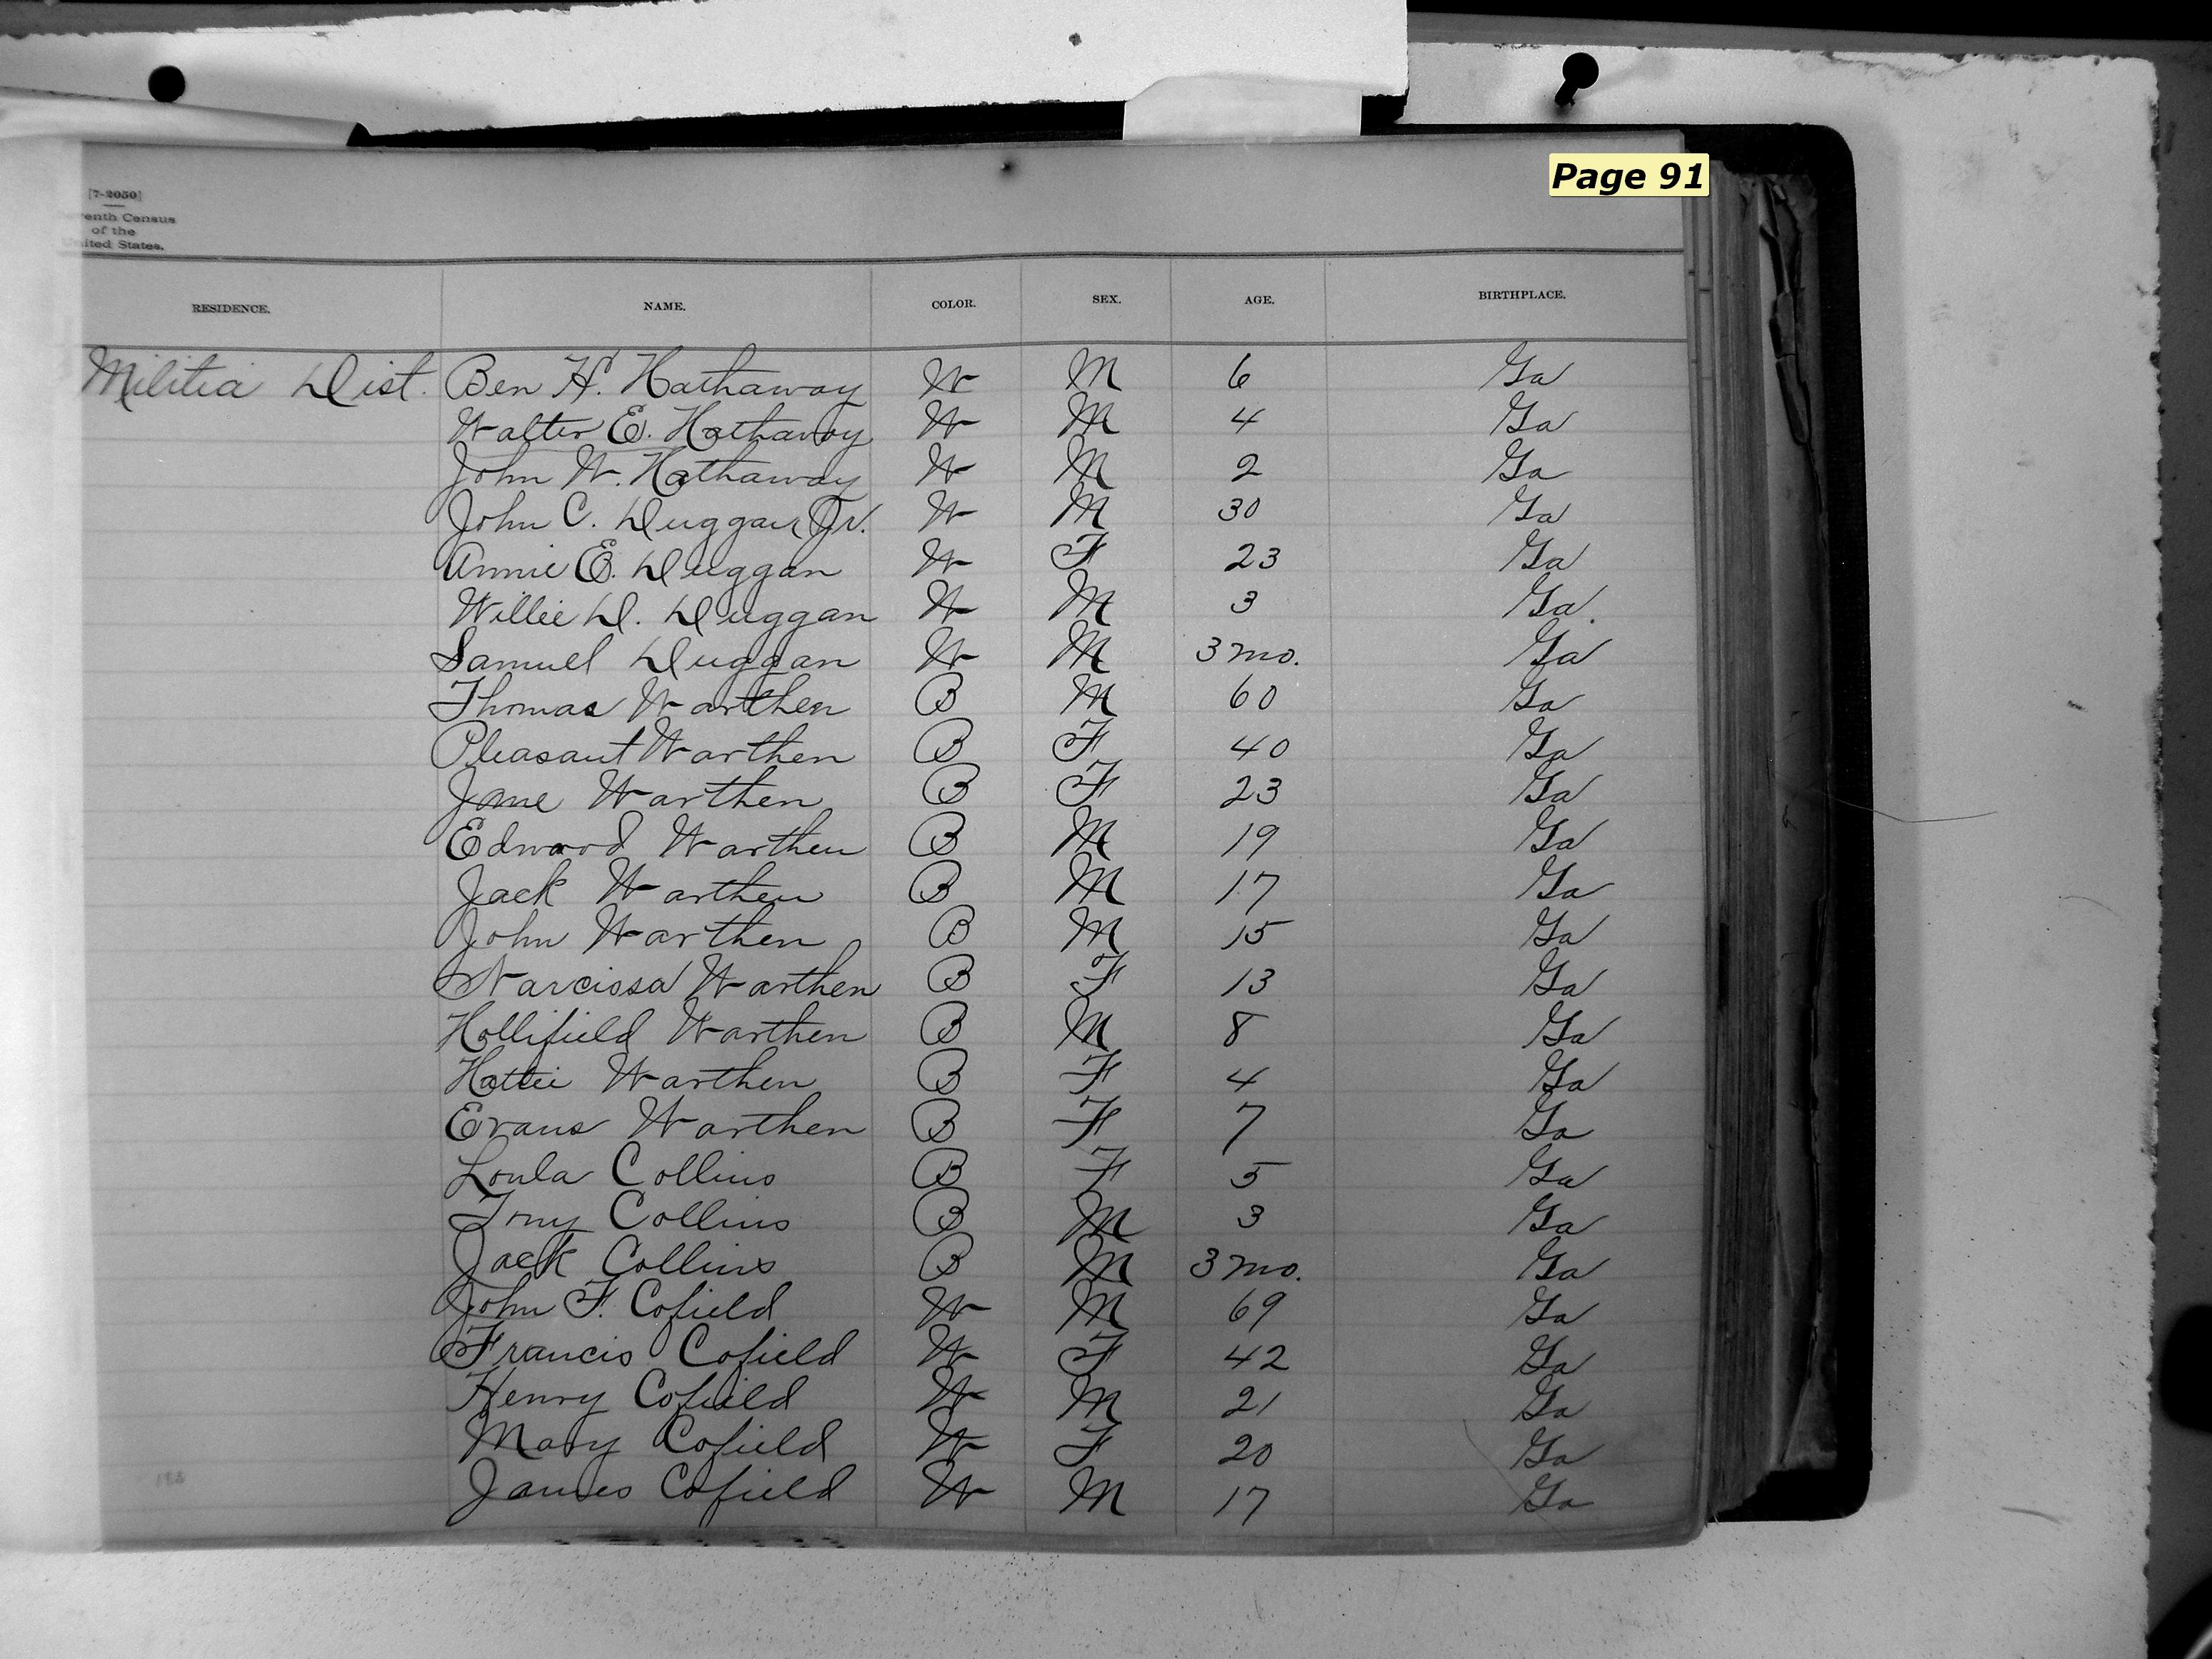 Page 91
[7-2050]
enth Census
of the
United States.
RESIDENCE. NAME. COLOR. SEX. AGE. BIRTHPLACE.
Militia Dist. Ben H. Hathaway W M 6 Ga
Walter E. Hathaway W M 4 Ga
John W. Hathaway W M 2 Ga
John C. Duggan Jr. W M 30 Ga
Annie E. Duggan W F 23 Ga
Willie D. Duggan W M 3 Ga.
Samuel Duggan W M 3 mo. Ga
Thomas Warthen B M 60 Ga
Pleasant Warthen B F 40 Ga
Jane Warthen B F 23 Ga
Edward Warthen B M 19 Ga
Jack Warthen B M 17 Ga
John Warthen B M 15 Ga
Narcissa Warthen B F 13 Ga
Hollifield Warthen B M 8 Ga
Hattie Warthen B F 4 Ga
Evans Warthen B F 7 Ga
Loula Collins B F 5 Ga
Tony Collins B M 3 Ga
Jack Collins B M 3 mo. Ga
John F. Cofield W M 69 Ga
Francis Cofield W F 42 Ga
Henry Cofield W M 21 Ga
Mary Cofield W F 20 Ga
James Cofield W M 17 Ga